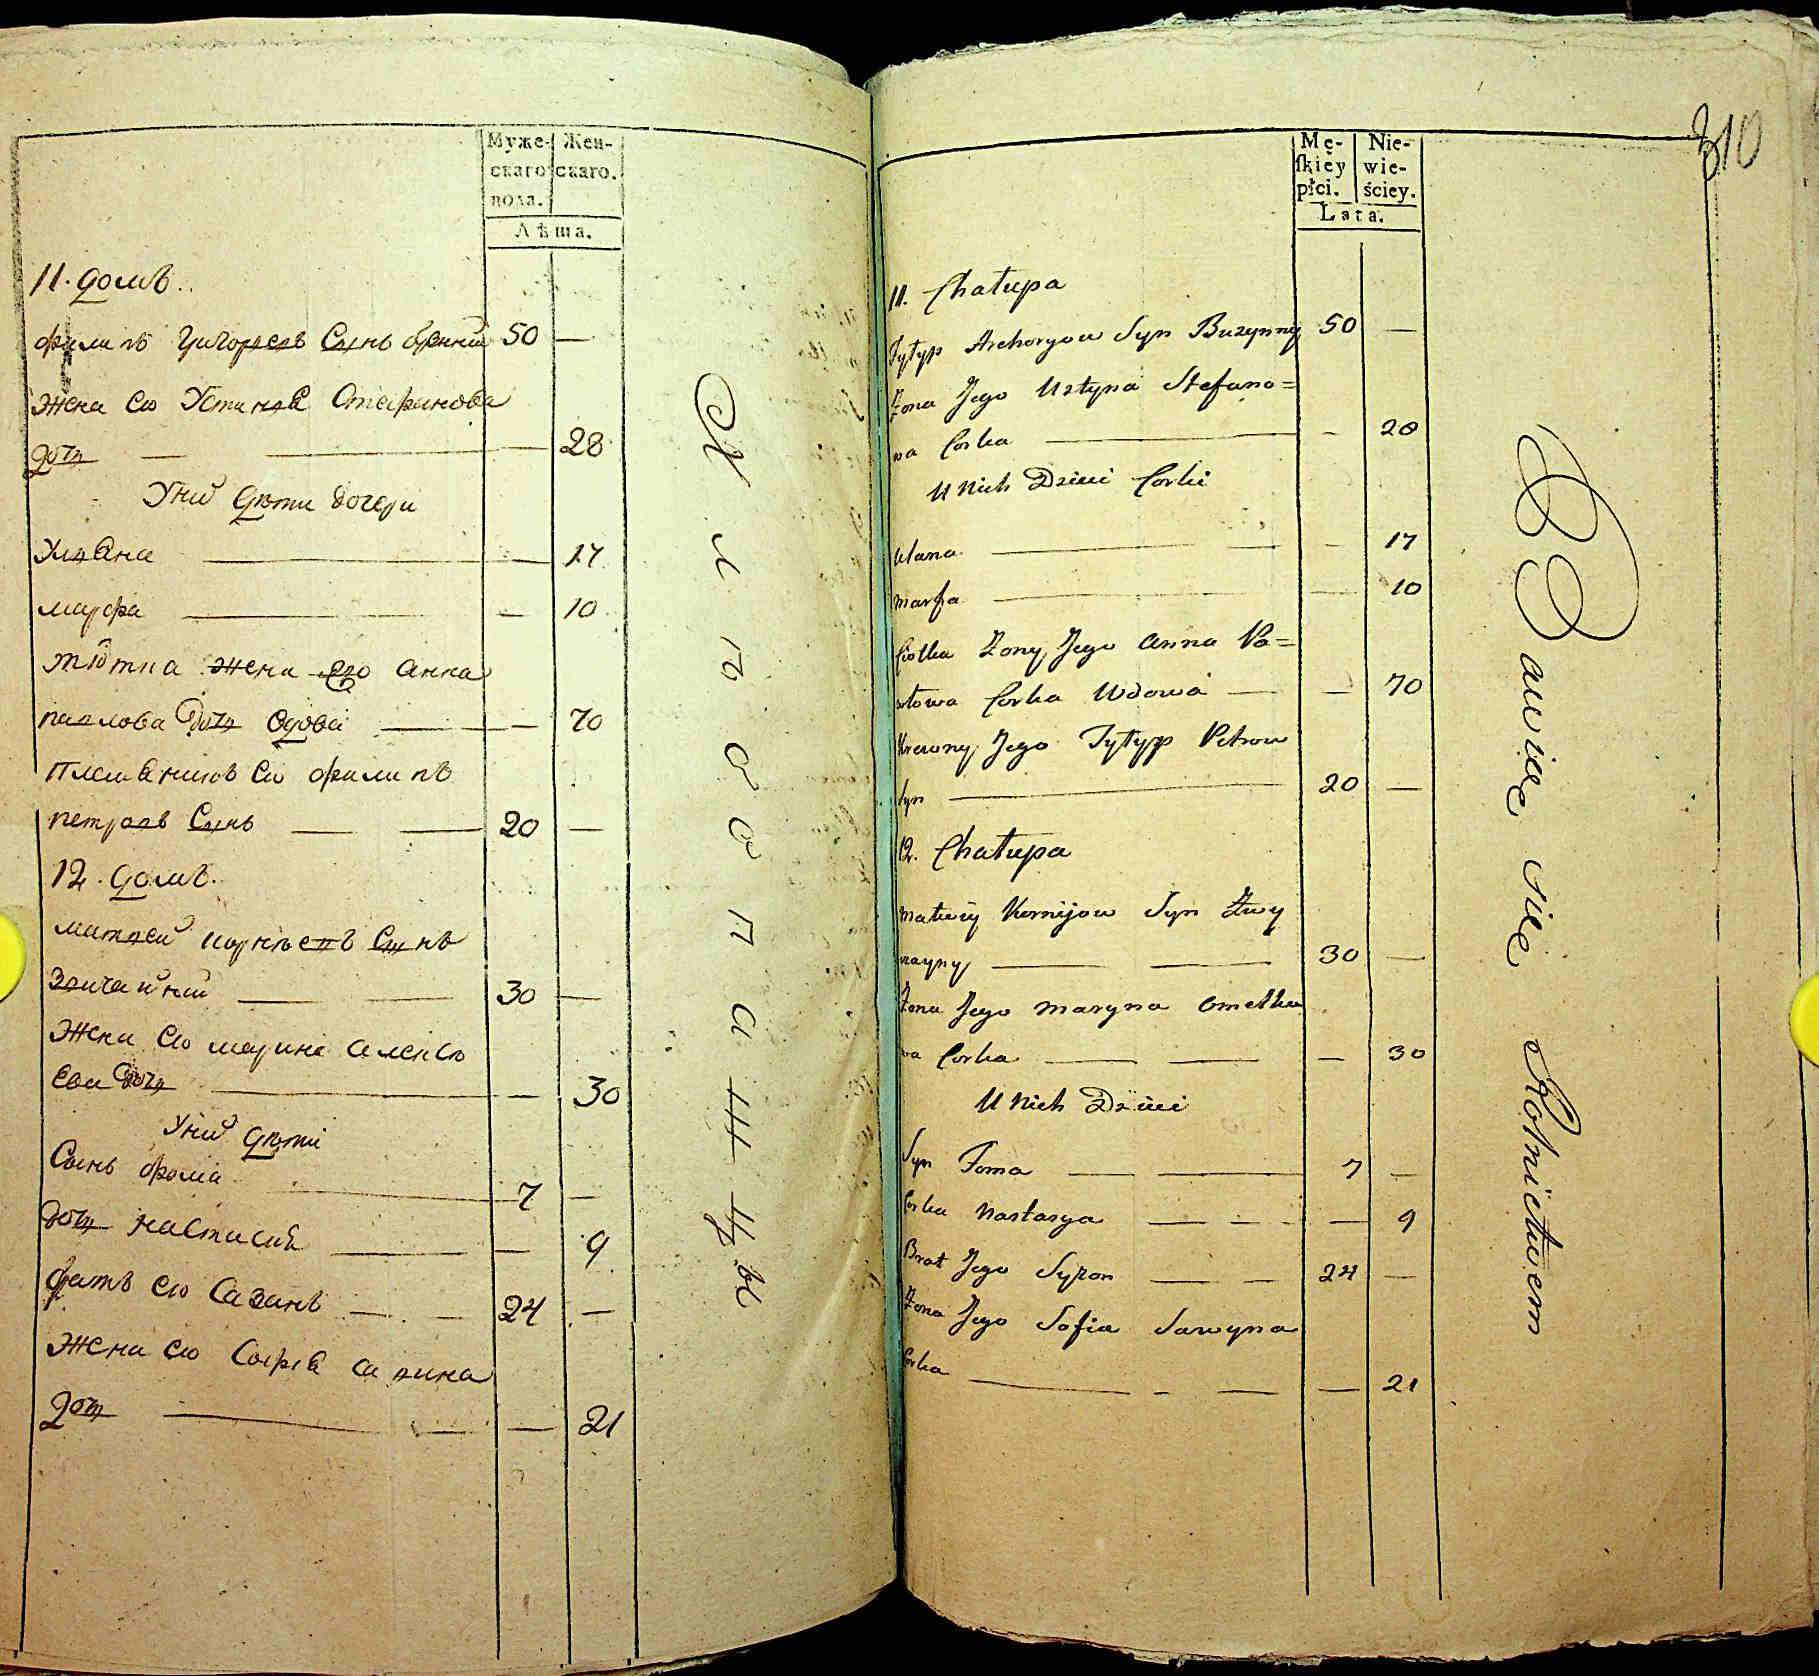 Муже-
скаго
пола.
Жен-
скаго.
Лѣта.
11. домъ.
филипъ Григорьевъ Сынъ
50 —
жена ево Устинья Стефанова
дочь — 28
Уних дѣти дочери
Ульяна — 17
марфа — 10
тютка жени его анна
павлова дочь вдова — 70
племеникъ ево филипъ
петровъ Сынъ 20 —
12. домъ.
матвей корнѣевъ Сынъ
30 —
жена ево марина алексѣ
ева дочь — 30
Уних дѣти
Сынъ фома 7 —
дочь настасия — 9
братъ ево Сазанъ 24 —
жена ево София савина
дочь — 21
Хлѣбопашцы
310
Mę-
ſkiéy
płci.
Nie-
wie-
ściey.
Lata.
11. Chałupa
Syn Buzynny 50 —
Żona Jego Ustyna Stefano=
wa Corka — 28
U Nich Dzieci Corki
Ulana — 17
Marfa — 10
Ciotka Żony Jego Anna Pa=
włowa Corka Wdowa — 70
Krewny Jego Fyłyp Petrow
Syn 20 —
12. Chałupa
Matwiy Kornijow Syn
30 —
Żona Jego Maryna
wa Corka — 30
U Nich Dzieci
Syn Foma 7 —
Corka Nastasya — 9
Brat Jego 24 —
Żona Jego Sofia Sawyna
Corka — 21
Bawią się Rolnictwem